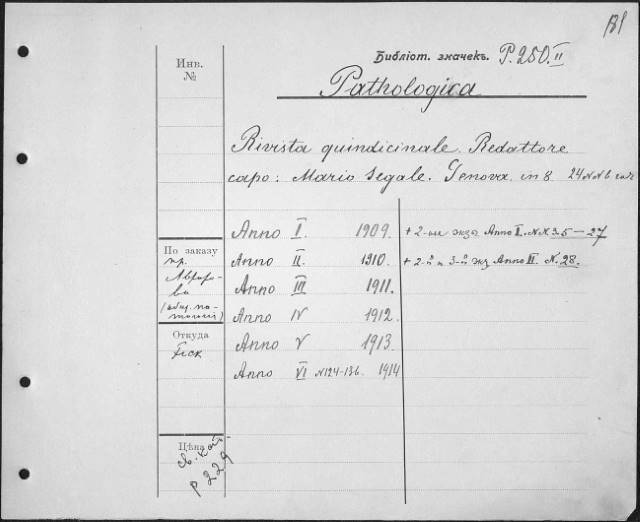 Библіот. значекъ. P.250.II
Pathologica
Инв.
№
Rivista quindicinale. Redattore
capo: Mario Segale. Genova. in 8 24 NN в год
Anno I. 1909. + 2-ые экз. Anno I. N.N. 3.5—27
Anno II. 1910. + 2-й и 3-й экз Anno II. N. 28.
Anno III 1911.
Anno IV 1912.
Anno V 1913.
Anno VI N124-136. 1914
По заказу
пр.
Авроро-
ва
(общ. па-
тологii)
Откуда
Цѣна
P 229